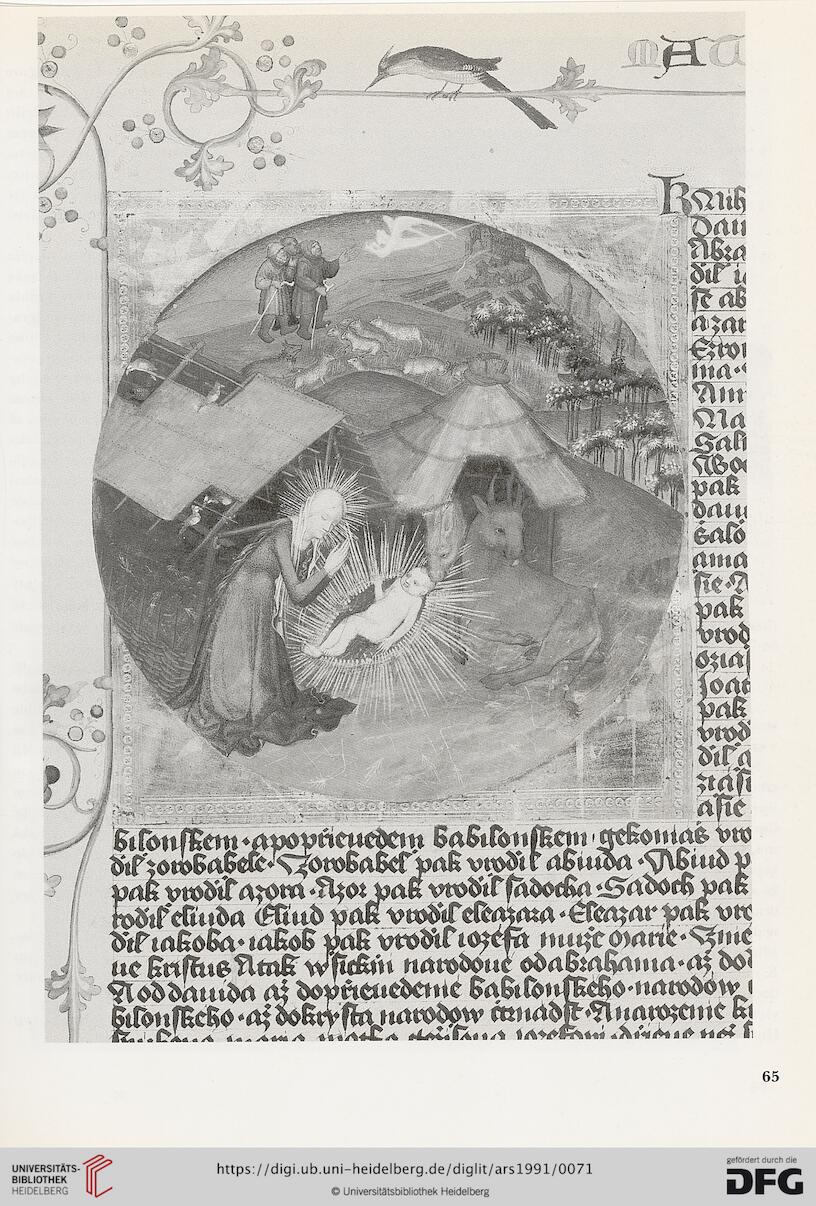 MA
KNih
Dau
Abra
dil i
se ab
azar
Ezro
ma·
Am
Ma
Sal
pak
daui
Salo
ama
sie·
pak
vrod
ozia
Joat
pak
vrod
dil a
asie
bilonskem·apoprzieuedem babilonskem·gekonias vro
dil zorobabele·Zorobabel pak vrodil abiuda·Abiud p
pak vrodil azora·Azor pak vrodil sadocha·Sadoch pak
rodil eliuda Eliud pak vrodil eleazara·Eleazar pak vro
dil iakoba·iakob pak vrodil iozefa muze marie·
ue kristus Atak wsickni narodoue odabrahama·až do
Aoddauida až doprzieuedenie babilonskeho·narodow
bilonskeho·až dokrysta narodow cztrnadst·Anarozenie
maria matka
65
UNIVERSITÄTS-
BIBLIOTHEK
HEIDELBERG
https://digi.ub.uni-heidelberg.de/diglit/ars1991/0071
© Universitätsbibliothek Heidelberg
gefördert durch die
DFG